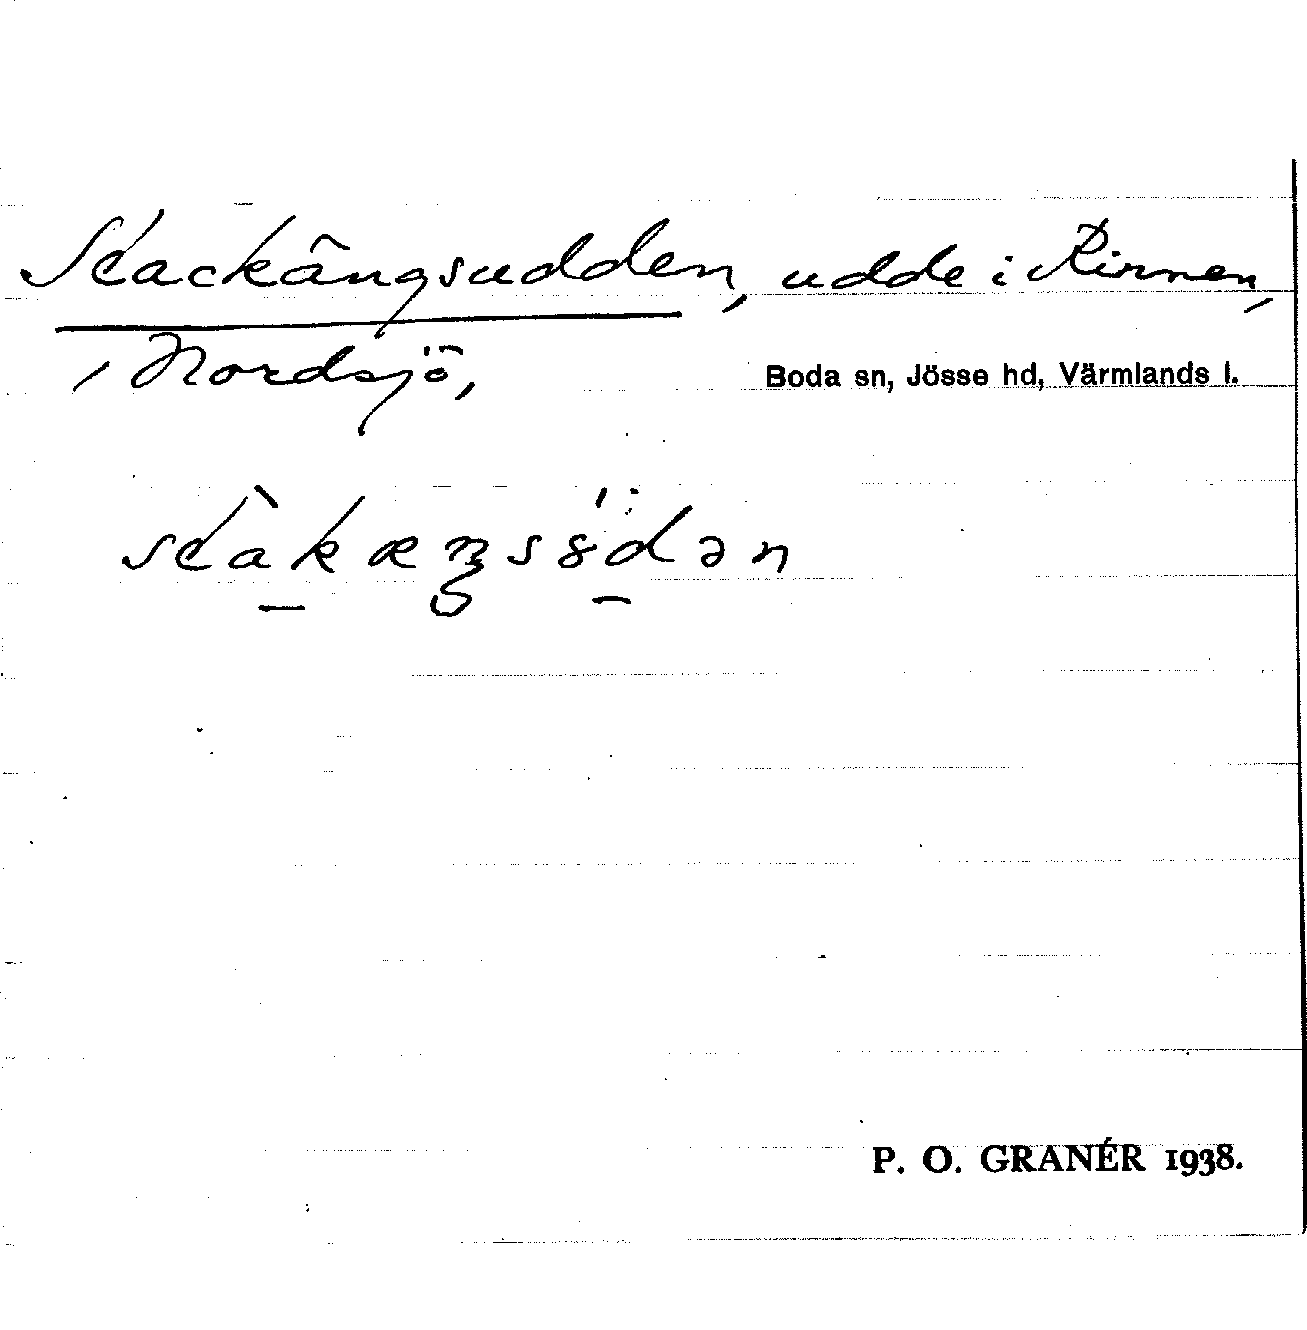 Stackängsudden, udde i Rinnen,
i Nordsjö,
Boda sn, Jösse hd, Värmlands l.
P. O. GRANÉR 1938.